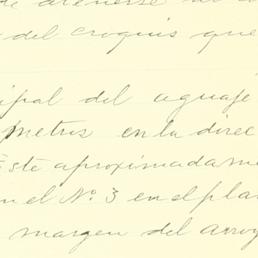 del croquis que
ipal del aguaje
metros en la direc
este aproximadame
n el Nº 3 en el plan
margen del arroy